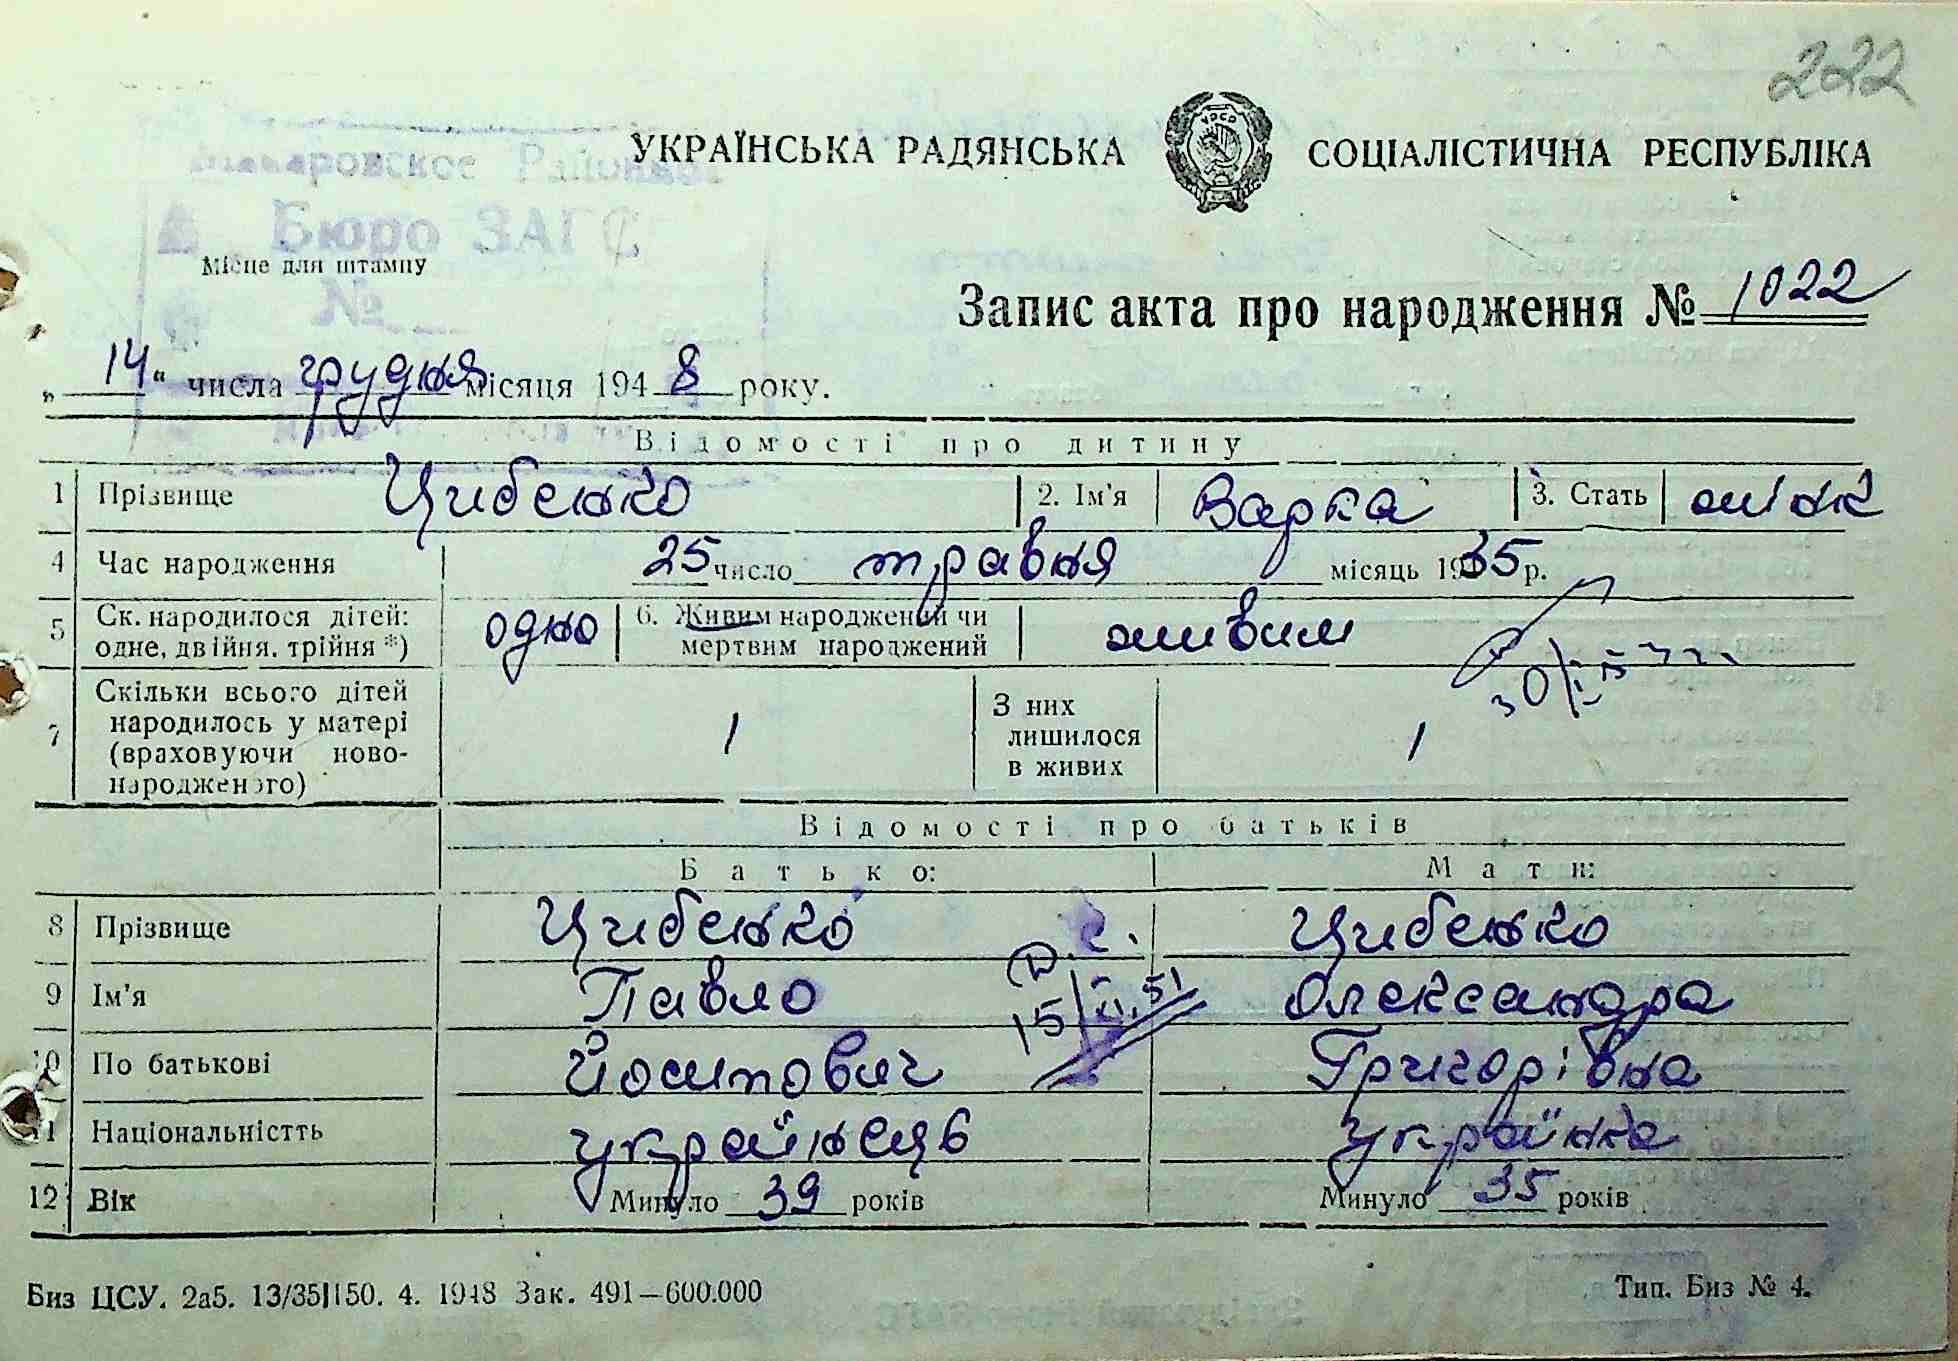 222
УКРАЇНСЬКА РАДЯНСЬКА СОЦІАЛІСТИЧНА РЕСПУБЛІКА
Макаровское Районное
Бюро ЗАГС
Місце для штампу
№
Запис акта про народження № 1022
„ 14 “ числа грудня місяця 1948 року.
Відомості про дитину
1 Прізвище Цибенко 2. Ім'я Варка 3. Стать жінк
4 Час народження 25 число травня місяць 1935 р.
5 Ск. народилося дітей: одне, двійня, трійня *) одно 6. Живим народжений чи мертвим народжений живим
7 Скільки всього дітей народилось у матері (враховуючи ново-народженого) 1 З них лишилося в живих 1
Відомості про батьків
Батько: Мати:
8 Прізвище Цибенко Цибенко
9 Ім'я Павло Олександра
10 По батькові Йосипович Григорівна
11 Національністть українець українка
12 Вік Минуло 39 років Минуло 35 років
Биз ЦСУ. 2а5. 13/35|150. 4. 1948 Зак. 491—600.000 Тип. Биз № 4.